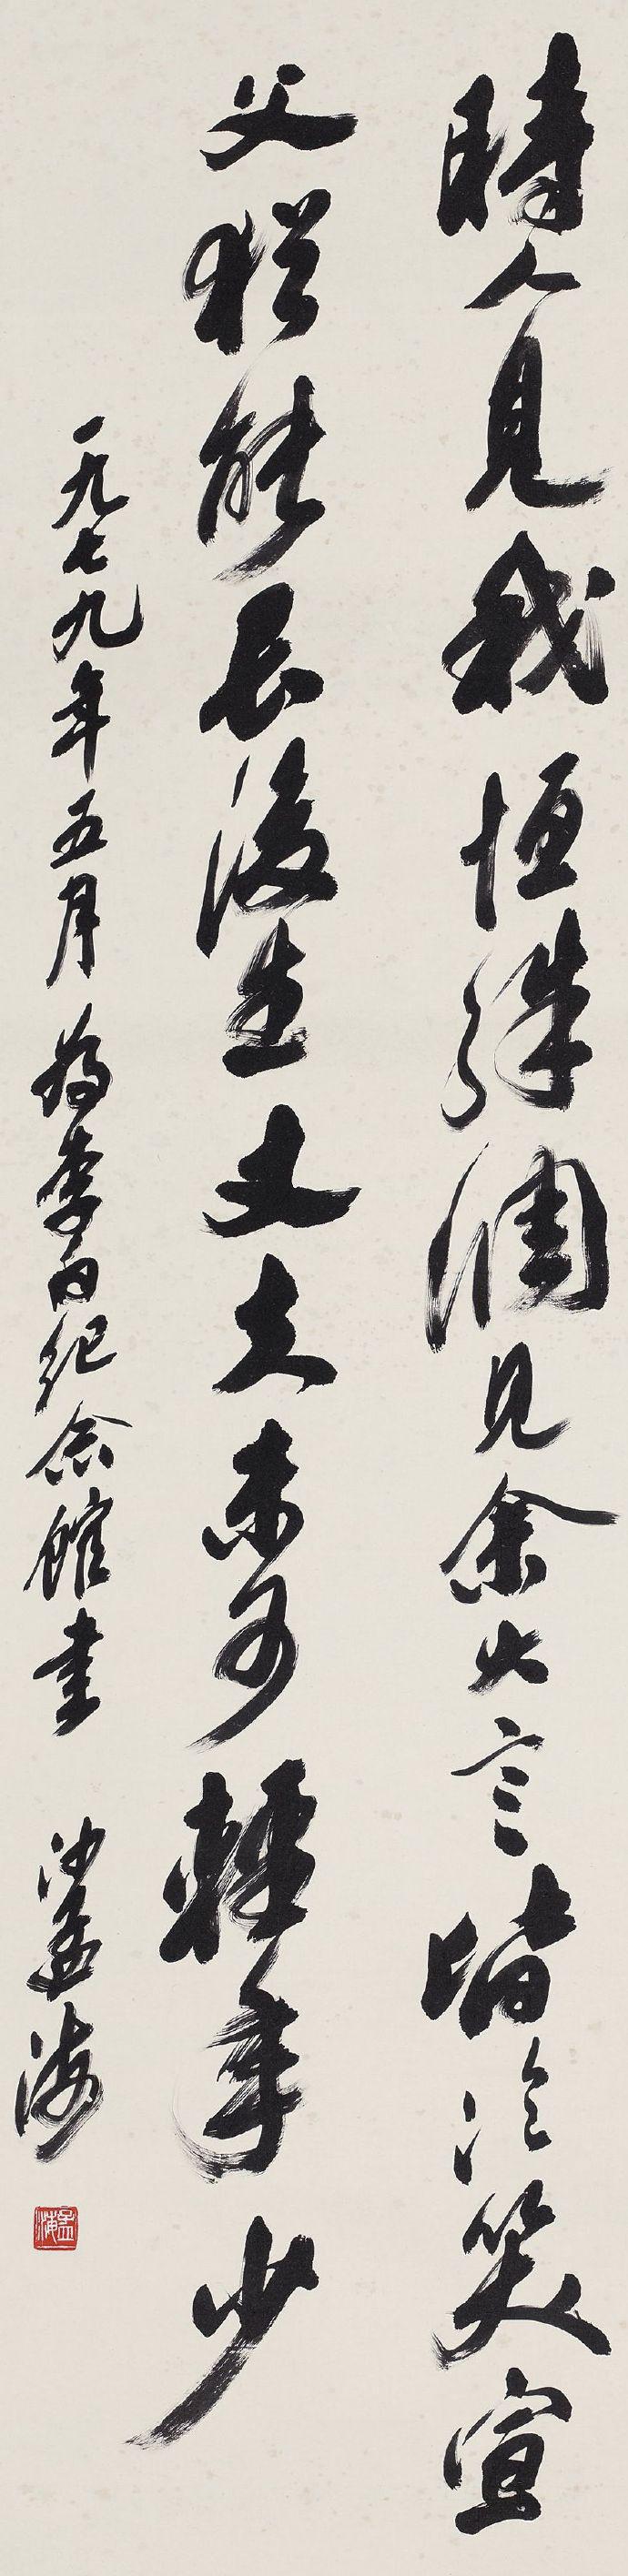 時人見我恒殊調見余大言皆冷笑宣
父猶能畏後生丈夫未可輕年少
一九七九年五月為李白紀念館書 沙孟海
孟海